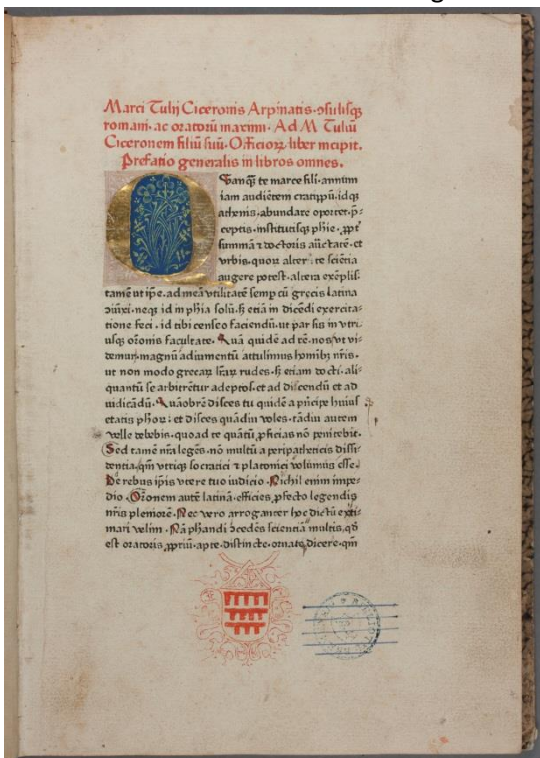 Marci Tulij Ciceronis Arpinatis. ɔsulisqꝫ
romani. ac oratorū maximi. Ad M. Tuliū
Ciceronem filiū suū. Officioꝝ liber incipit.
Prefatio generalis in libros omnes.
Quanqꝫ te marce fili. annum
iam audiētem cratippū. idqꝫ
athenis. abundare oportet. p̄-
ceptis. institutisqꝫ phie. ꝓpt̄
summā ⁊ doctoris auctatē. et
vrbis. quoꝝ alter te sciētia
augere potest. altera exēplis.
tamē ut ip̄e. ad meā vtilitatē semp cū grecis latina
ɔiūxi. neqꝫ id in phia solū. ꝫ etiā in dicēdi exercita-
tione feci. id tibi censeo faciendū. ut par sis in vtri-
usqꝫ orōnis facultate. Quā quidē ad rē. nos ut vi-
demur. magnū adiumentū attulimus homībꝫ nr̄is.
ut non modo grecaꝝ lr̄aꝝ rudes. ꝫ etiam docti. ali-
quantū se arbitrētur adeptos. et ad discendū et ad
iudicādū. Quāobrē disces tu quidē a p̄ncipe huiuſ
etatis phoꝝ: et disces quādiu voles. tādiu autem
velle debebis. quoad te quātū ꝓficias nō penitebit.
Sed tamē nr̄a legēs. nō multū a peripatheticis dissi-
dentia. qm̄ vtriqꝫ socratici ⁊ platonici volumus esse.
De rebus ip̄is vtere tuo iudicio. Nichil enim impe-
dio. Orōnem autē latinā. efficies. ꝓfecto legendis
nr̄is pleniorē. Nec vero arroganter hoc dictū exti-
mari velim. Nā phandi ɔcedēs scienciā multis. qd̄
est oratoris ꝓpriū. apte. distincte. ornate dicere. qm̄